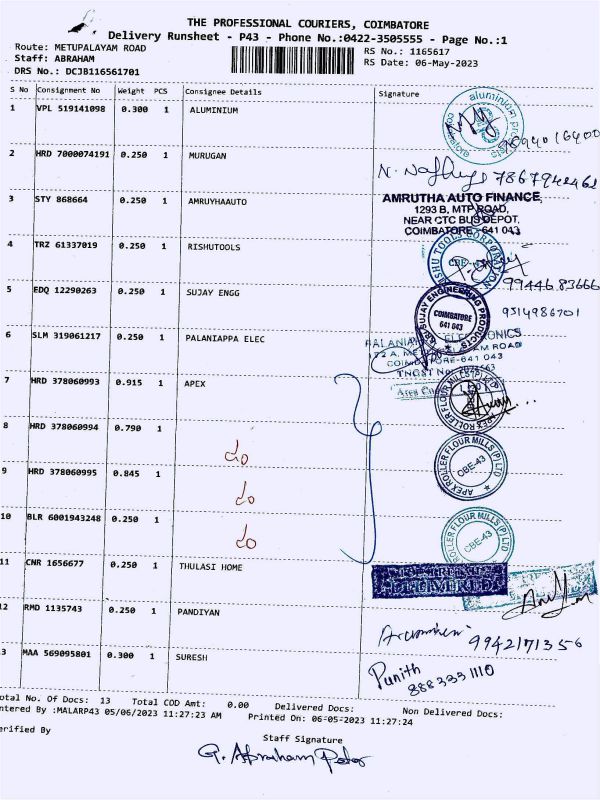 THE PROFESSIONAL COURIERS, COIMBATORE
Delivery Runsheet - P43 - Phone No.:0422-3505555 - Page No.:1
Route: METUPALAYAM ROAD
RS No.: 1165617
Staff: ABRAHAM
RS Date: 06-May-2023
DRS No.: DCJB116561701
S No Consignment No Weight PCS Consignee Details Signature
1 VPL 519141098 0.300 1 ALUMINIUM
aluminium
coimbatore
2 HRD 7000074191 0.250 1 MURUGAN
7867942461
3 STY 868664 0.250 1 AMRUYHAAUTO
AMRUTHA AUTO FINANCE,
1293 B, MTP ROAD,
NEAR CTC BUS DEPOT,
COIMBATORE - 641 043
4 TRZ 61337019 0.250 1 RISHUTOOLS
99446 83666
5 EDQ 12290263 0.250 1 SUJAY ENGG
SUJAY ENGINEERING PRODUCTS
COIMBATORE
641 043
9514986701
6 SLM 319061217 0.250 1 PALANIAPPA ELEC
COIMBATORE-641 043
7 HRD 378060993 0.915 1 APEX
APEX ROLLER FLOUR MILLS (P) LTD
8 HRD 378060994 0.790 1
APEX ROLLER FLOUR MILLS (P) LTD
CBE-43
9 HRD 378060995 0.845 1
10 BLR 6001943248 0.250 1
ROLLER FLOUR MILLS (P) LTD
CBE-43
11 CNR 1656677 0.250 1 THULASI HOME
12 RMD 1135743 0.250 1 PANDIYAN
9942171356
13 MAA 569095801 0.300 1 SURESH
Punith
888 333 1110
Total No. Of Docs: 13 Total COD Amt: 0.00 Delivered Docs: Non Delivered Docs:
Entered By :MALARP43 05/06/2023 11:27:23 AM Printed On: 06-05-2023 11:27:24
Verified By
Staff Signature
G. Abraham